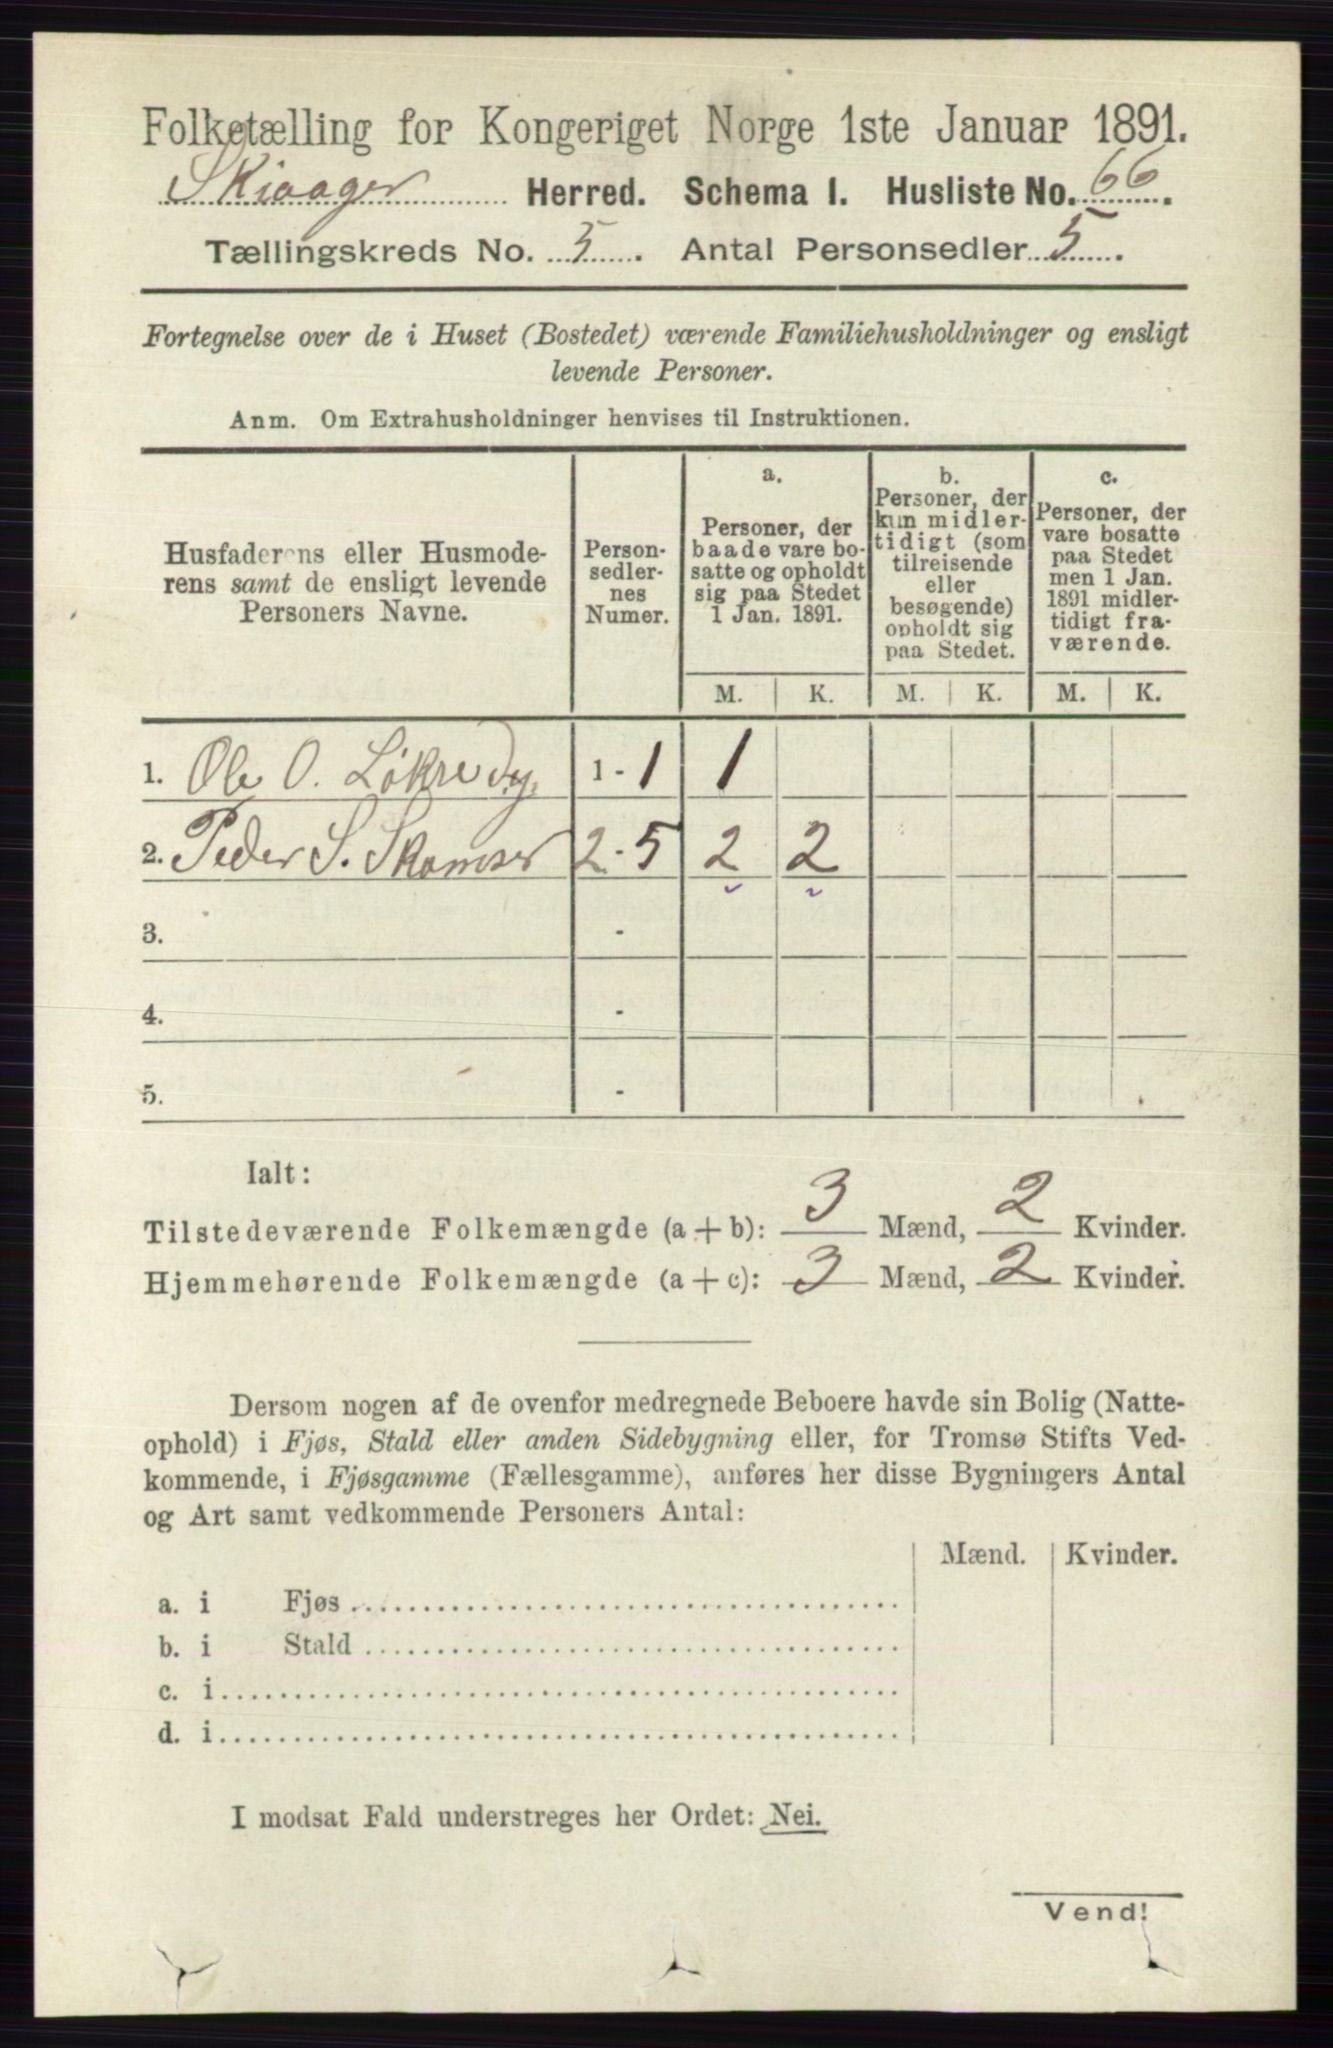 Folketælling for Kongeriget Norge 1ste Januar 1891.
Skiaager Herred. Schema I. Husliste No. 66.
Tællingskreds No. 5. Antal Personsedler 5.
Fortegnelse over de i Huset (Bostedet) værende Familiehusholdninger og ensligt
levende Personer.
Anm. Om Extrahusholdninger henvises til Instruktionen.
Husfaderens eller Husmode-
rens samt de ensligt levende
Personers Navne.
Person-
sedler-
nes
Numer.
a.
Personer, der
baade vare bo-
satte og opholdt
sig paa Stedet
1 Jan. 1891.
b.
Personer, der
kun midler-
tidigt (som
tilreisende
eller
besøgende)
opholdt sig
paa Stedet.
c.
Personer, der
vare bosatte
paa Stedet
men 1 Jan.
1891 midler-
tidigt fra-
værende.
M. K. M. K. M. K.
1. Ole O. Løkre 1 - 1 1
2. Peder S. Skamser 2 - 5 2 2
3. -
4. -
5. -
Ialt:
Tilstedeværende Folkemængde (a + b): 3 Mænd, 2 Kvinder.
Hjemmehørende Folkemængde (a + c): 3 Mænd, 2 Kvinder.
Dersom nogen af de ovenfor medregnede Beboere havde sin Bolig (Natte-
ophold) i Fjøs, Stald eller anden Sidebygning eller, for Tromsø Stifts Ved-
kommende, i Fjøsgamme (Fællesgamme), anføres her disse Bygningers Antal
og Art samt vedkommende Personers Antal:
Mænd. Kvinder.
a. i Fjøs
b. i Stald
c. i
d. i
I modsat Fald understreges her Ordet: Nei.
Vend!